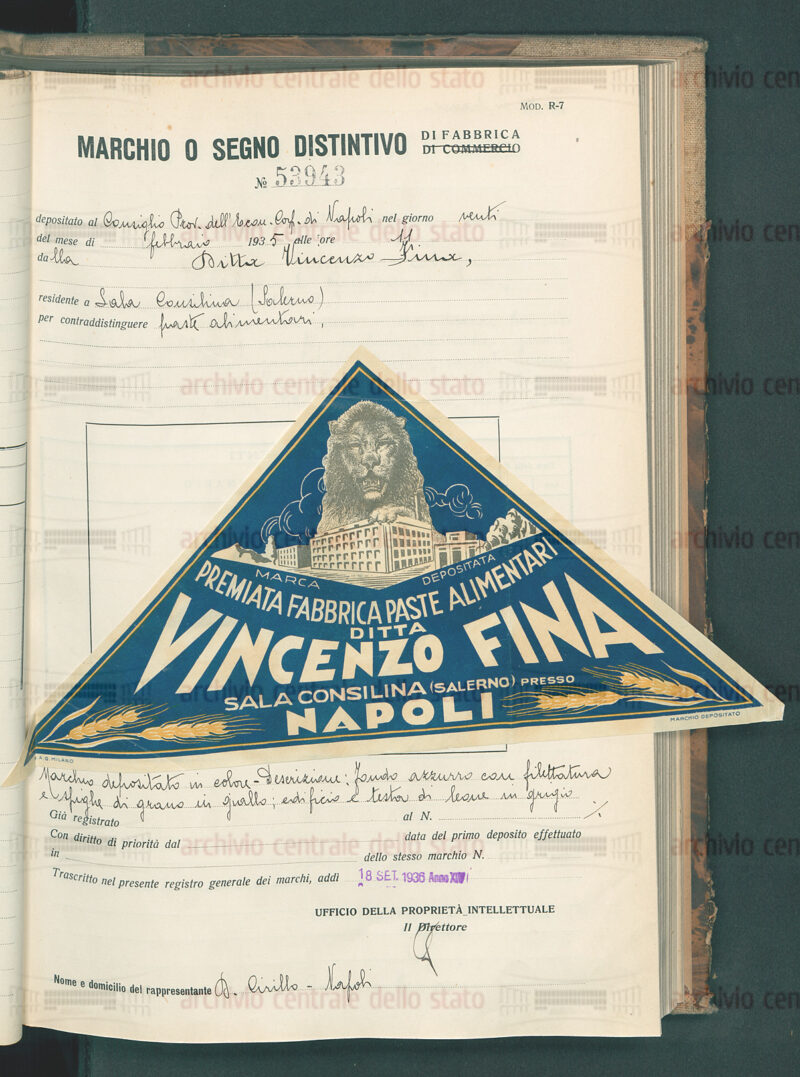 MOD. R-7
MARCHIO O SEGNO DISTINTIVO DI FABBRICA
DI COMMERCIO
№ 53943
depositato al Consiglio Prov. dell'Econ. Corp. di Napoli nel giorno venti
del mese di febbraio 1935 alle ore 11
dalla Ditta Vincenzo Fina,
residente a Sala Consilina (Salerno)
per contraddistinguere paste alimentari,
MARCA DEPOSITATA
PREMIATA FABBRICA PASTE ALIMENTARI
DITTA
VINCENZO FINA
SALA CONSILINA (SALERNO) PRESSO
NAPOLI
MARCHIO DEPOSITATO
MILANO
Marchio depositato in colore - Descrizione: fondo azzurro con filettatura
e spighe di grano in giallo; edificio e testa di leone in grigio
Già registrato al N. ./.
Con diritto di priorità dal data del primo deposito effettuato
in dello stesso marchio N.
Trascritto nel presente registro generale dei marchi, addì 18 SET. 1936 Anno XIV
UFFICIO DELLA PROPRIETÀ INTELLETTUALE
Il Direttore
Nome e domicilio del rappresentante D. Cirillo - Napoli
archivio centrale dello stato